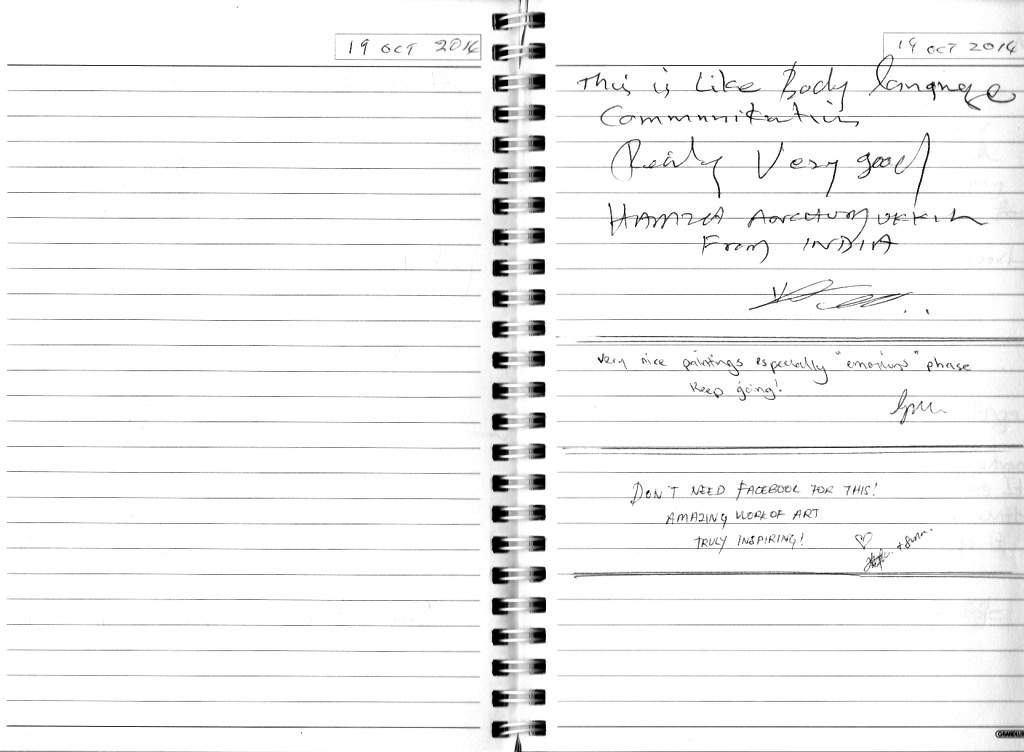 19 OCT 2014
19 OCT 2014
This is Like Body language
Communikation
Realy Very good
HAMZA
From INDIA
very nice paintings especially "emotions" phase
Keep going!
DON'T NEED FACEBOOK FOR THIS!
AMAZING WORK OF ART
TRULY INSPIRING!
GRANDLUXE